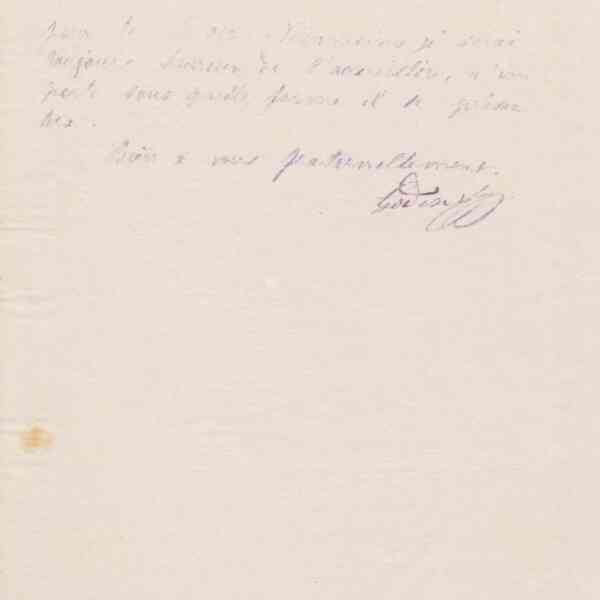 pour le
toujours heureux de l'accueillir, n'im
porte sous quelle forme il se présen
tera.
Bien à vous fraternellement.
Godin